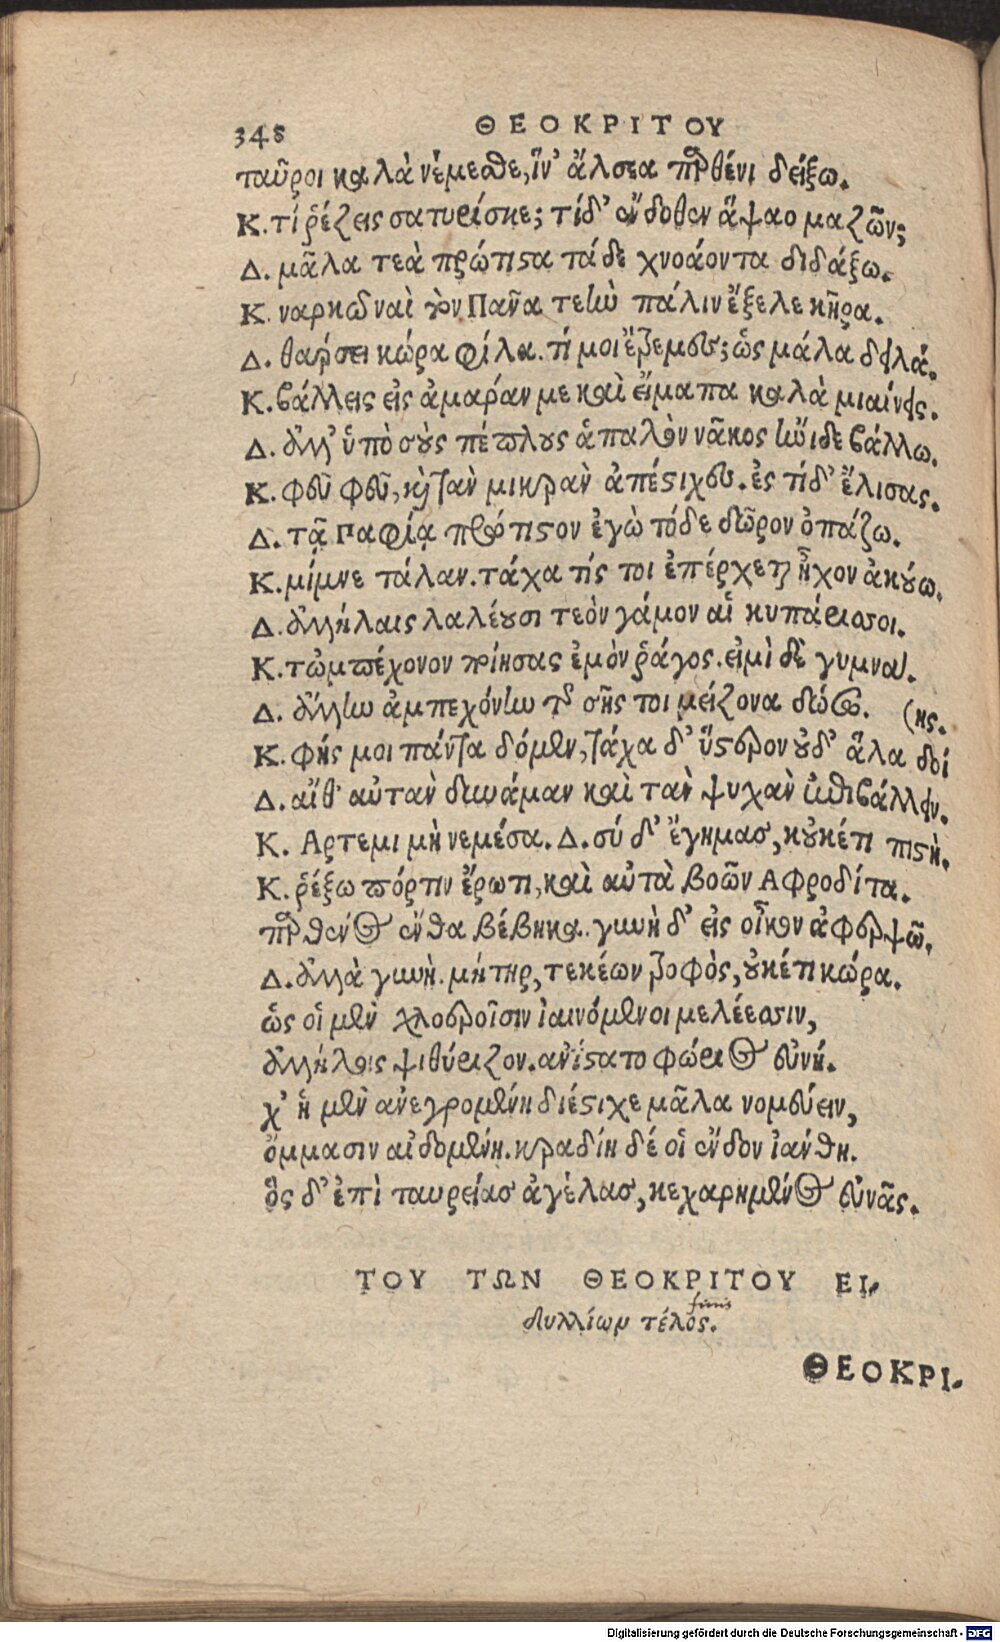 348 ΘΕΟΚΡΙΤΟΥ
ταῦροι καλὰ νέμεσθε, ἵν' ἄλσεα παρθένι δείξω.
Κ. τί ῥέζεις σατυρίσκε; τί δ' ἔνδοθεν ἅψαο μαζῶν;
Δ. μᾶλα τεὰ πρώτιστα τάδε χνοάοντα διδάξω.
Κ. ναρκῶ ναὶ τὸν Πᾶνα τεὴν πάλιν ἔξελε κῆρα.
Δ. θάρσει κώρα φίλα. τί μοι ἔτρεμες; ὡς μάλα δειλά.
Κ. βάλλεις εἰς ἀμαράν με καὶ εἵματα καλὰ μιαίνεις.
Δ. ἀλλ' ὑπὸ σοὺς πέπλους ἁπαλὸν νάκος ἠνίδε βάλλω.
Κ. φεῦ φεῦ, καὶ τὰν μικρὰν ἀπέστιχες. ἐς τί δ' ἔλισας.
Δ. τᾷ Παφίᾳ πρώτιστον ἐγὼ τόδε δῶρον ὀπάζω.
Κ. μίμνε τάλαν. τάχα τίς τοι ἐπέρχεται ἦχον ἀκούω.
Δ. ἀλλήλαις λαλέουσι τεὸν γάμον αἱ κυπάρισσοι.
Κ. τὠμπέχονον ποίησας ἐμὸν ῥάγος. εἰμὶ δὲ γυμνά.
Δ. ἄλλην ἀμπεχόνην τῆς σῆς τοι μείζονα δώσω. (ης.
Κ. φής μοι πάντα δόμεν, τάχα δ' ὕστερον οὐδ' ἅλα δοί
Δ. αἴθ' αὐτὰν δυνάμαν καὶ τὰν ψυχὰν ἐπιβάλλειν.
Κ. Αρτεμι μὴ νεμέσα. Δ. σύ δ' ἔγημας, κοὐκέτι πιστή.
Κ. ῥέξω πόρτιν ἔρωτι, καὶ αὐτὰ βοῶν Αφροδίτα.
παρθένος ἔνθα βέβηκα. γυνὴ δ' εἰς οἶκον ἀφερψῶ.
Δ. ἀλλὰ γυνὴ. μήτηρ, τεκέων τροφὸς, οὐκέτι κώρα.
ὣς οἱ μὲν χλοεροῖσιν ἰαινόμενοι μελέεσσιν,
ἀλλήλοις ψιθύριζον. ανίστατο φώριος εὐνή.
χ' ἡ μὲν ανεγρομένη διέστιχε μᾶλα νομεύειν,
ὄμμασιν αἰδομένη. κραδίη δέ οἱ ἔνδον ἰάνθη.
ὃς δ' ἐπὶ ταυρείας ἀγέλας, κεχαρημένος εὐνᾶς.
ΤΟΥ ΤΩΝ ΘΕΟΚΡΙΤΟΥ ΕΙ-
finis
δυλλίων τέλος.
ΘΕΟΚΡΙ-
Digitalisierung gefördert durch die Deutsche Forschungsgemeinschaft - DFG